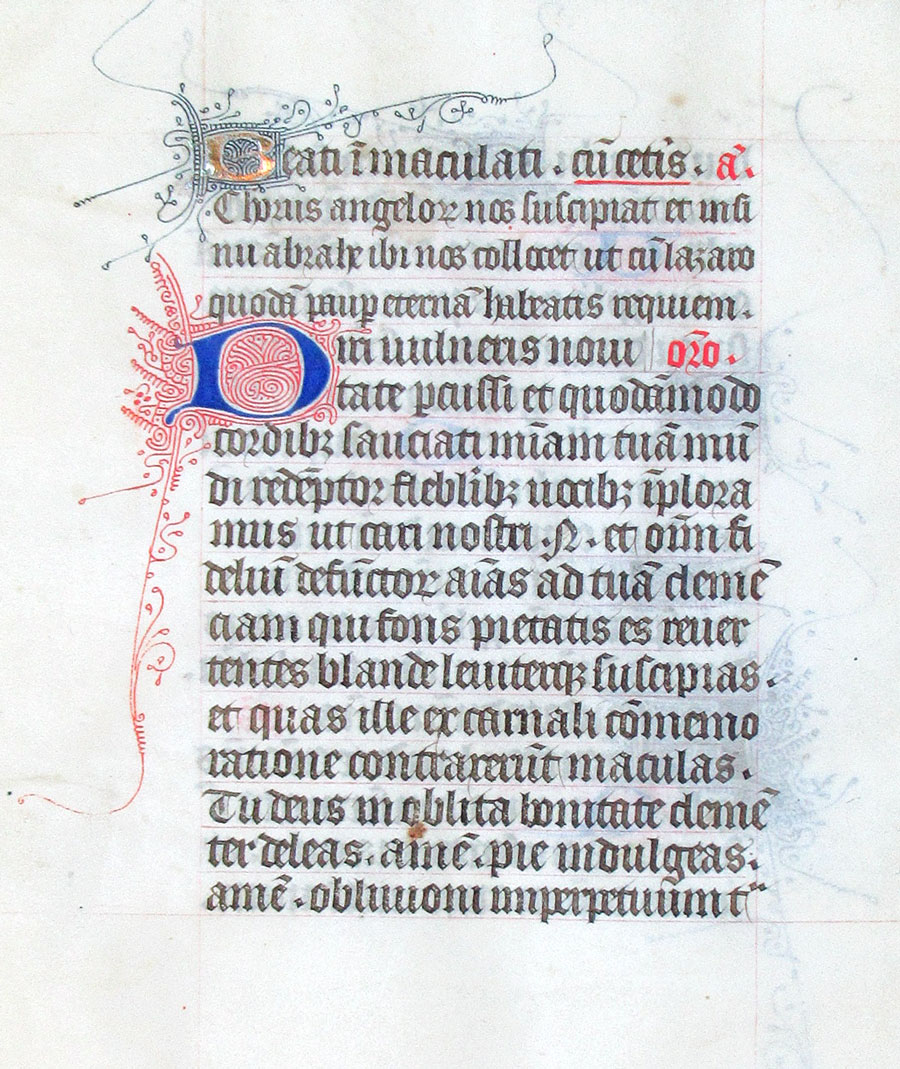 Beati ī maculati . cū cetis . a͞ .
Chorus angeloꝝ nos suscipiat et in si
nu abrahe ibi nos collocet ut cū lazaro
quodā paup eternā habeatis requiem .
Diri uulneris noui oro͞ .
tate pcussi et quodāmodo
cordibꝫ sauciati mīam tuā mū
di redēptor flebilibꝫ uocibꝫ īplora
mus ut cari nostri . N . et oīm fi
deliū defūctoꝝ aīas ad tuā clemē
ciam qui fons pietatis es reuer
tentes blande leniterqꝫ suscipias .
et quas ille ex carnali cōmemo
ratione contraxerūt maculas .
Tu deus in oblita bonitate clemē
ter deleas . amē . pie indulgeas .
amē . obliuioni imperpetuūm t